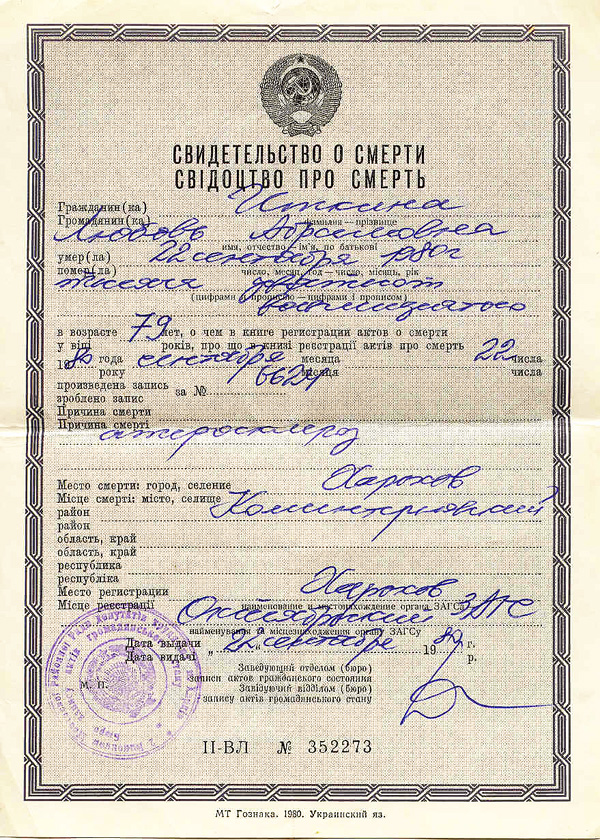 СВИДЕТЕЛЬСТВО О СМЕРТИ
СВІДОЦТВО ПРО СМЕРТЬ
Гражданин(ка) Иткина
Громадянин(ка) фамилия — прізвище
Любовь Абрамовна
имя, отчество — ім'я, по батькові
умер(ла) 22 сентября 1980г
помер(ла) число, месяц, год — число, місяць, рік
тысяча девятьсот
(цифрами и прописью — цифрами і прописом)
восьмидесятого
в возрасте 79 лет, о чем в книге регистрации актов о смерти
у віці років, про що в книзі реєстрації актів про смерть
1980 года сентября месяца 22 числа
року місяця числа
произведена запись за № 6624
зроблено запис
Причина смерти
Причина смерті атеросклероз
Место смерти: город, селение Харьков
Місце смерті: місто, селище
район Коминтерновский
район
область, край
область, край
республика
республіка
Место регистрации Харьков
Місце реєстрації наименование и местонахождение органа ЗАГСа
Октябрьский ЗАГС
найменування й місцезнаходження органу ЗАГСу
Дата выдачи „22" сентября 1980 г.
Дата видачі р.
Заведующий отделом (бюро)
записи актов гражданского состояния
М. П. Завідуючий відділом (бюро)
запису актів громадянського стану
II-ВЛ № 352273
МТ Гознака. 1980. Украинский яз.